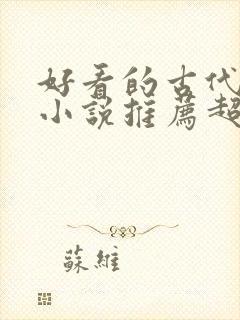 好看的古代
小說推薦超
蘇維